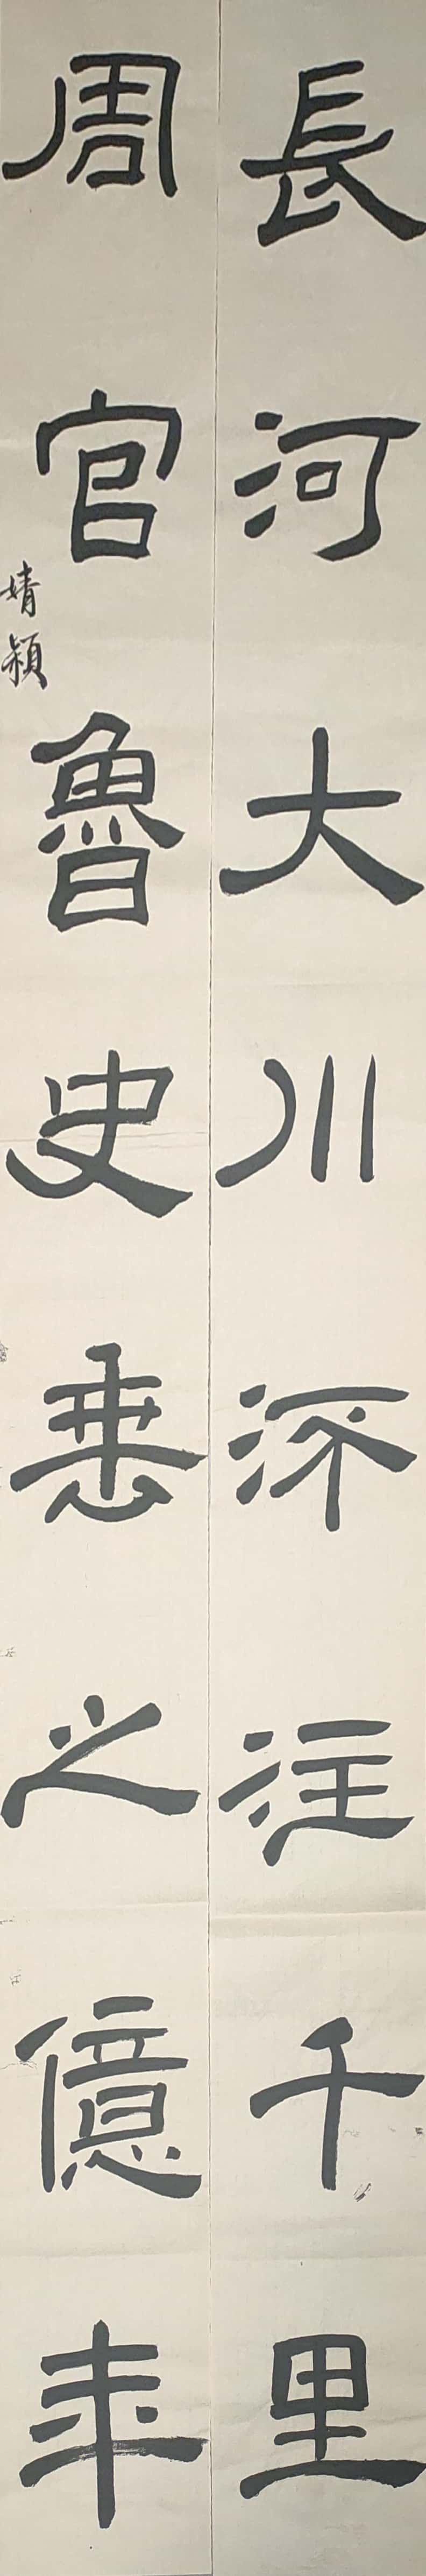 長河大川㳅注千里
周官魯史垂之億年
婧穎